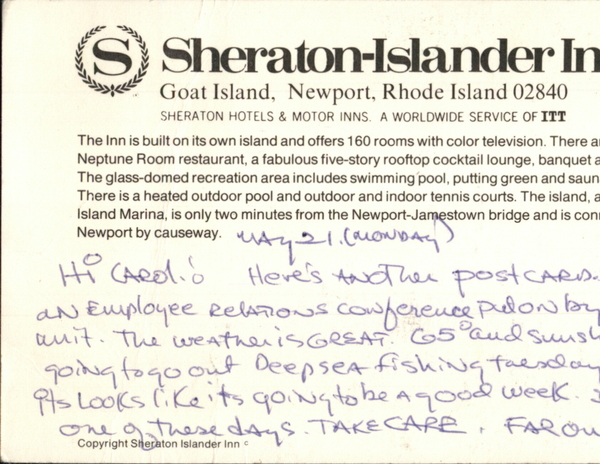 S Sheraton-Islander In
Goat Island, Newport, Rhode Island 02840
SHERATON HOTELS & MOTOR INNS. A WORLDWIDE SERVICE OF ITT
The Inn is built on its own island and offers 160 rooms with color television. There a
Neptune Room restaurant, a fabulous five-story rooftop cocktail lounge, banquet a
The glass-domed recreation area includes swimming pool, putting green and saun
There is a heated outdoor pool and outdoor and indoor tennis courts. The island, a
Island Marina, is only two minutes from the Newport-Jamestown bridge and is con
Newport by causeway.
MAY 21. (MONDAY)
Hi CAROL: HERE'S ANOTHER POSTCARD.
AN Employee RELATIONS CONFERENCE put on by
unit. The weather is GREAT. 65° and sunsh
going to go out Deep sea fishing tuesday
its LOOKS like its going to be a good week.
one of these days. TAKE CARE. FAR OU
Copyright Sheraton Islander Inn c